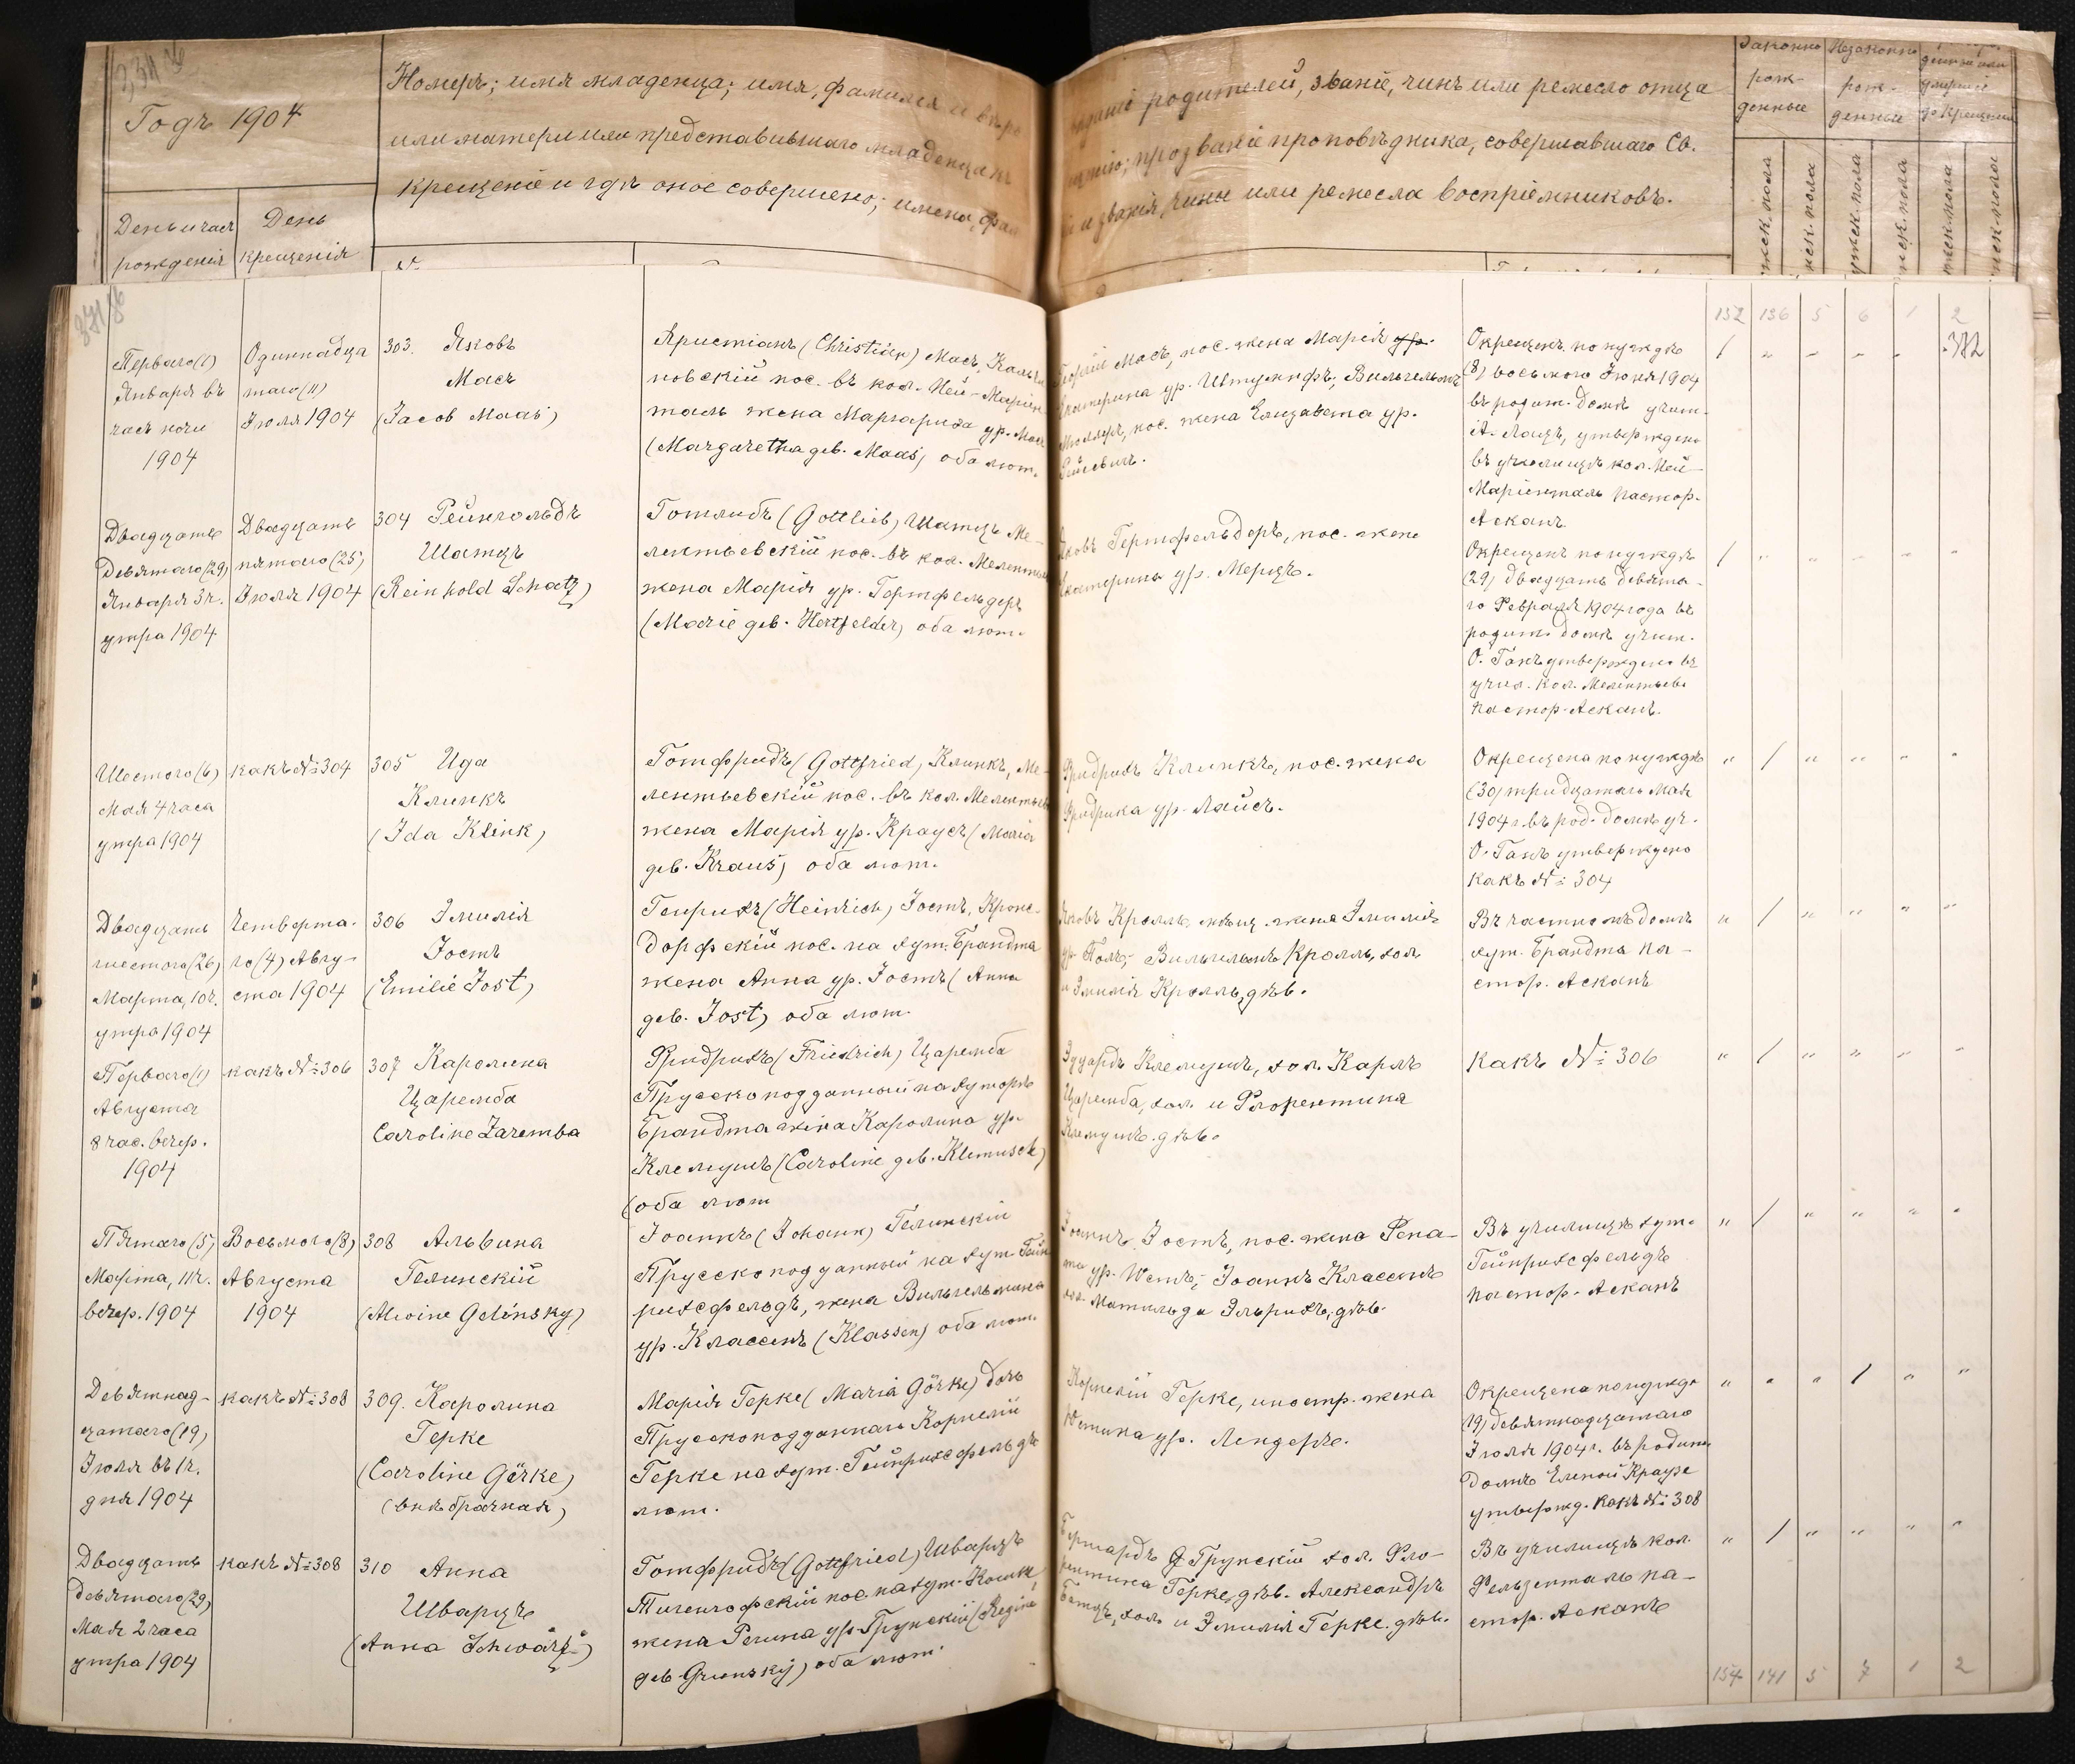 Годъ 1904
Номеръ; имя младенца; имя, фамилія и вѣро
или матери или представившаго младенца къ
крещенію и гдѣ оное совершено; имена, фам
День и часъ рожденія
День крещенія
родителей, званіе, чинъ или ремесло отца
прозваніе проповѣдника, совершавшаго Св.
и званія, чины или ремесла воспріемниковъ.
Законно
рож-
денные
Незаконно
рож-
денные
умершіе
до крещенія
132 136 5 6 1 2
382
Перваго (1)
Января въ
часъ ночи
1904
Одиннадца
таго (11)
Іюля 1904
303. Яковъ
Масъ
(Jacob Maas)
Христіанъ (Christian) Масъ,
новскій пос. въ кол. Ней-Маріен
таль жена Маргарита ур. Мас
(Margaretha geb. Maas) оба лют.
Георгій Масъ, пос. жена Марія ур.
Екатерина ур. Штумпфъ; Вильгельмъ
Мюллеръ, пос. жена Елизавета ур.
Окрещенъ по нуждѣ
(8) восьмого Іюня 1904
въ родит. домѣ учит.
А. Лацъ, утверждено
въ училищѣ кол. Ней-
Маріенталь пастор.
Асканъ.
Двадцать
девятаго (29)
Января 3 ч.
утра 1904
Двадцать
пятаго (25)
Іюля 1904
304 Рейнгольдъ
Шатцъ
(Reinhold Schatz)
Готлибъ (Gottlieb) Шатцъ Ме-
лентьевскій пос. въ кол. Мелентье
жена Марія ур. Гертфельдеръ
(Marie geb. Hertfelder) оба лют.
Яковъ Гертфельдеръ, пос. жена
Екатерина ур. Мерцъ.
Окрещенъ по нуждѣ
(29) двадцать девята-
го Февраля 1904 года въ
родит. домѣ учит.
О. Ганъ утверждено въ
учил. кол. Мелентьево
пастор. Асканъ.
Шестого (6)
Мая 4 часа
утра 1904
какъ № 304
305 Ида
Клинкъ
(Ida Klink)
Готфридъ (Gottfried) Клинкъ, Ме-
лентьевскій пос. въ кол. Мелентьев
жена Марія ур. Краусъ (Maria
geb. Kraus) оба лют.
Фридрихъ Клинкъ, пос. жена
Фридрика ур. Лайсъ.
Окрещена по нуждѣ
(30) тридцатаго Мая
1904 г. въ род. домѣ уч.
О. Ганъ утверждено
какъ № 304
Двадцать
шестого (26)
Марта, 10 ч.
утра 1904
Четверта-
го (4) Авгу-
ста 1904
306 Эмилія
Іостъ
(Emilie Jost)
Генрихъ (Heinrich) Іостъ, Кронс-
дорфскій пос. на хут. Брандта
жена Анна ур. Іостъ (Anna
geb. Jost) оба лют.
Яковъ Кролль, мѣщ. жена Эмилія
ур. Поль; Вильгельмъ Кролль, хол.
и Эмилія Кролль, дѣв.
Въ частномъ домѣ
хут. Брандта па-
стор. Асканъ
Перваго (1)
Августа
8 час. вечер.
1904
какъ № 306
307 Каролина
Царемба
Caroline Zaremba
Фридрихъ (Friedrich) Царемба
Прусскоподданный на хуторѣ
Брандта жена Каролина ур.
Клемушъ (Caroline geb. Klemusch)
(оба лют
Эдуардъ Клемушъ, хол. Карлъ
Царемба, хол. и Флорентина
Клемушъ. дѣв.
какъ № 306
Пятаго (5)
Марта, 11 ч.
вечер. 1904
Восьмого (8)
Августа
1904
308 Альвина
Гелинскій
(Alwine Gelinsky)
Іоаннъ (Johann) Гелинскій
Прусскоподданный на хут. Гейн
рихсфельдъ, жена Вильгельмина
ур. Классенъ (Klassen) оба лют.
Іоаннъ Іостъ, пос. жена Рена-
та ур. Иетъ; Іоаннъ Классенъ
хол. Матильда Эльрихъ, дѣв.
Въ училищѣ хут.
Гейнрихсфельдъ
пастор. Асканъ
Девятнад-
цатаго (19)
Іюля въ 1 ч.
дня 1904
какъ № 308
309. Каролина
Герке
(Caroline Görke)
(внѣбрачная)
Марія Герке (Maria Görke) дочь
Прусскоподданнаго Корнелій
Герке на хут. Гейнрихсфельдъ
лют.
Корнелій Герке, иностр. жена
ур. Лендеръ.
Окрещена по нуждѣ
19) девятнадцатаго
Іюля 1904 г. въ родит.
домѣ Еленой Краузе
утвержд. какъ № 308
Двадцать
девятаго (29)
Мая 2 часа
утра 1904
какъ № 308
310 Анна
Шварцъ
(Anna Schwarz)
Готфридъ (Gottfried) Шварцъ
Тигенгофскій пос. на хут.
жена Регина ур. Грунскій (Regine
geb. Grunsky) оба лют.
Бернардъ Грунскій хол. Фло-
рентина Герке, дѣв. Александръ
хол. и Эмилія Герке. дѣв.
Въ училищѣ кол.
Фельзенталь па-
стор. Асканъ
154 141 5 7 1 2